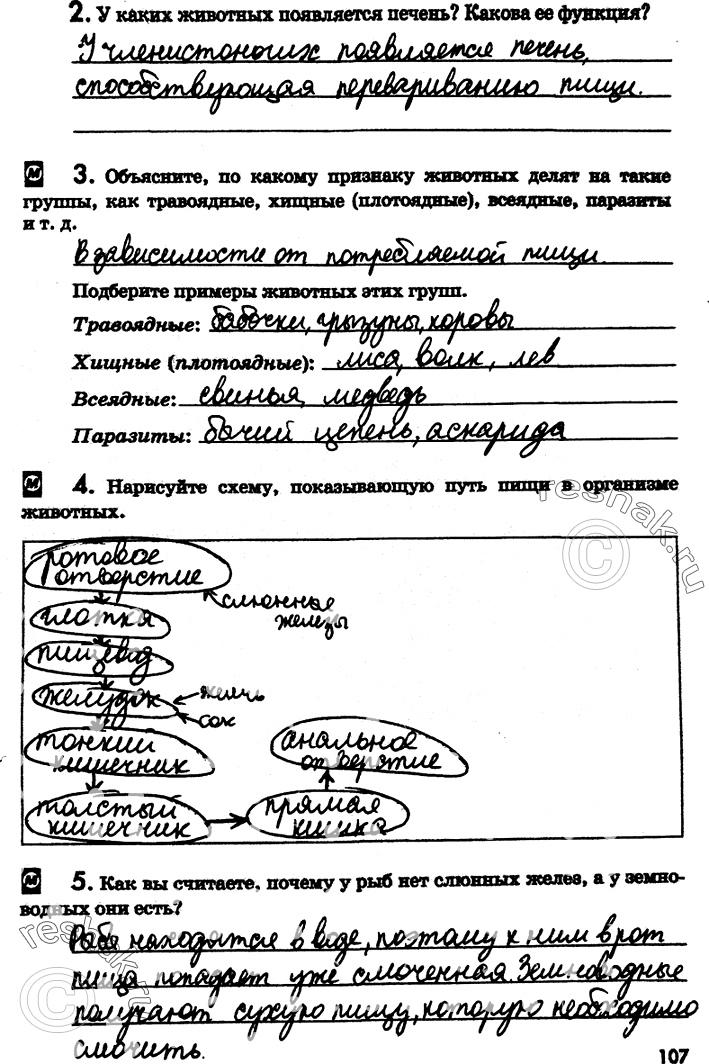 2. У каких животных появляется печень? Какова ее функция?
У членистоногих появляется печень,
способствующая перевариванию пищи.
3. Объясните, по какому признаку животных делят на такие
группы, как травоядные, хищные (плотоядные), всеядные, паразиты
и т. д.
В зависимости от потребляемой пищи.
Подберите примеры животных этих групп.
Травоядные: бабочки, грызуны, коровы
Хищные (плотоядные): лиса, волк, лев
Всеядные: свинья, медведь
Паразиты: бычий цепень, аскарида
4. Нарисуйте схему, показывающую путь пищи в организме
животных.
ротовое
отверстие
слюнные
железы
глотка
пищевод
желудок
желчь
сок
тонкий
кишечник
анальное
отверстие
толстый
кишечник
прямая
кишка
5. Как вы считаете, почему у рыб нет слюнных желез, а у земно-
водных они есть?
Рыбы находятся в воде, поэтому к ним в рот
пища попадает уже смоченная. Земноводные
получают сухую пищу, которую необходимо
смочить.
107
resnak.ru
resnak.ru